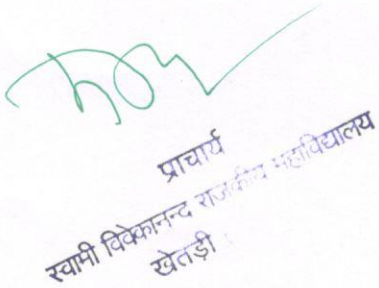 प्राचार्य
स्वामी विवेकानन्द राजकीय महाविद्यालय
खेतड़ी